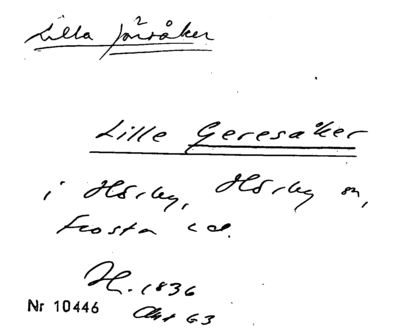 Lilla Järsåker
Lille Geresåker
i Hörby, Hörby sn,
Frosta hd.
H. 1836
Nr 10446
Akt 63